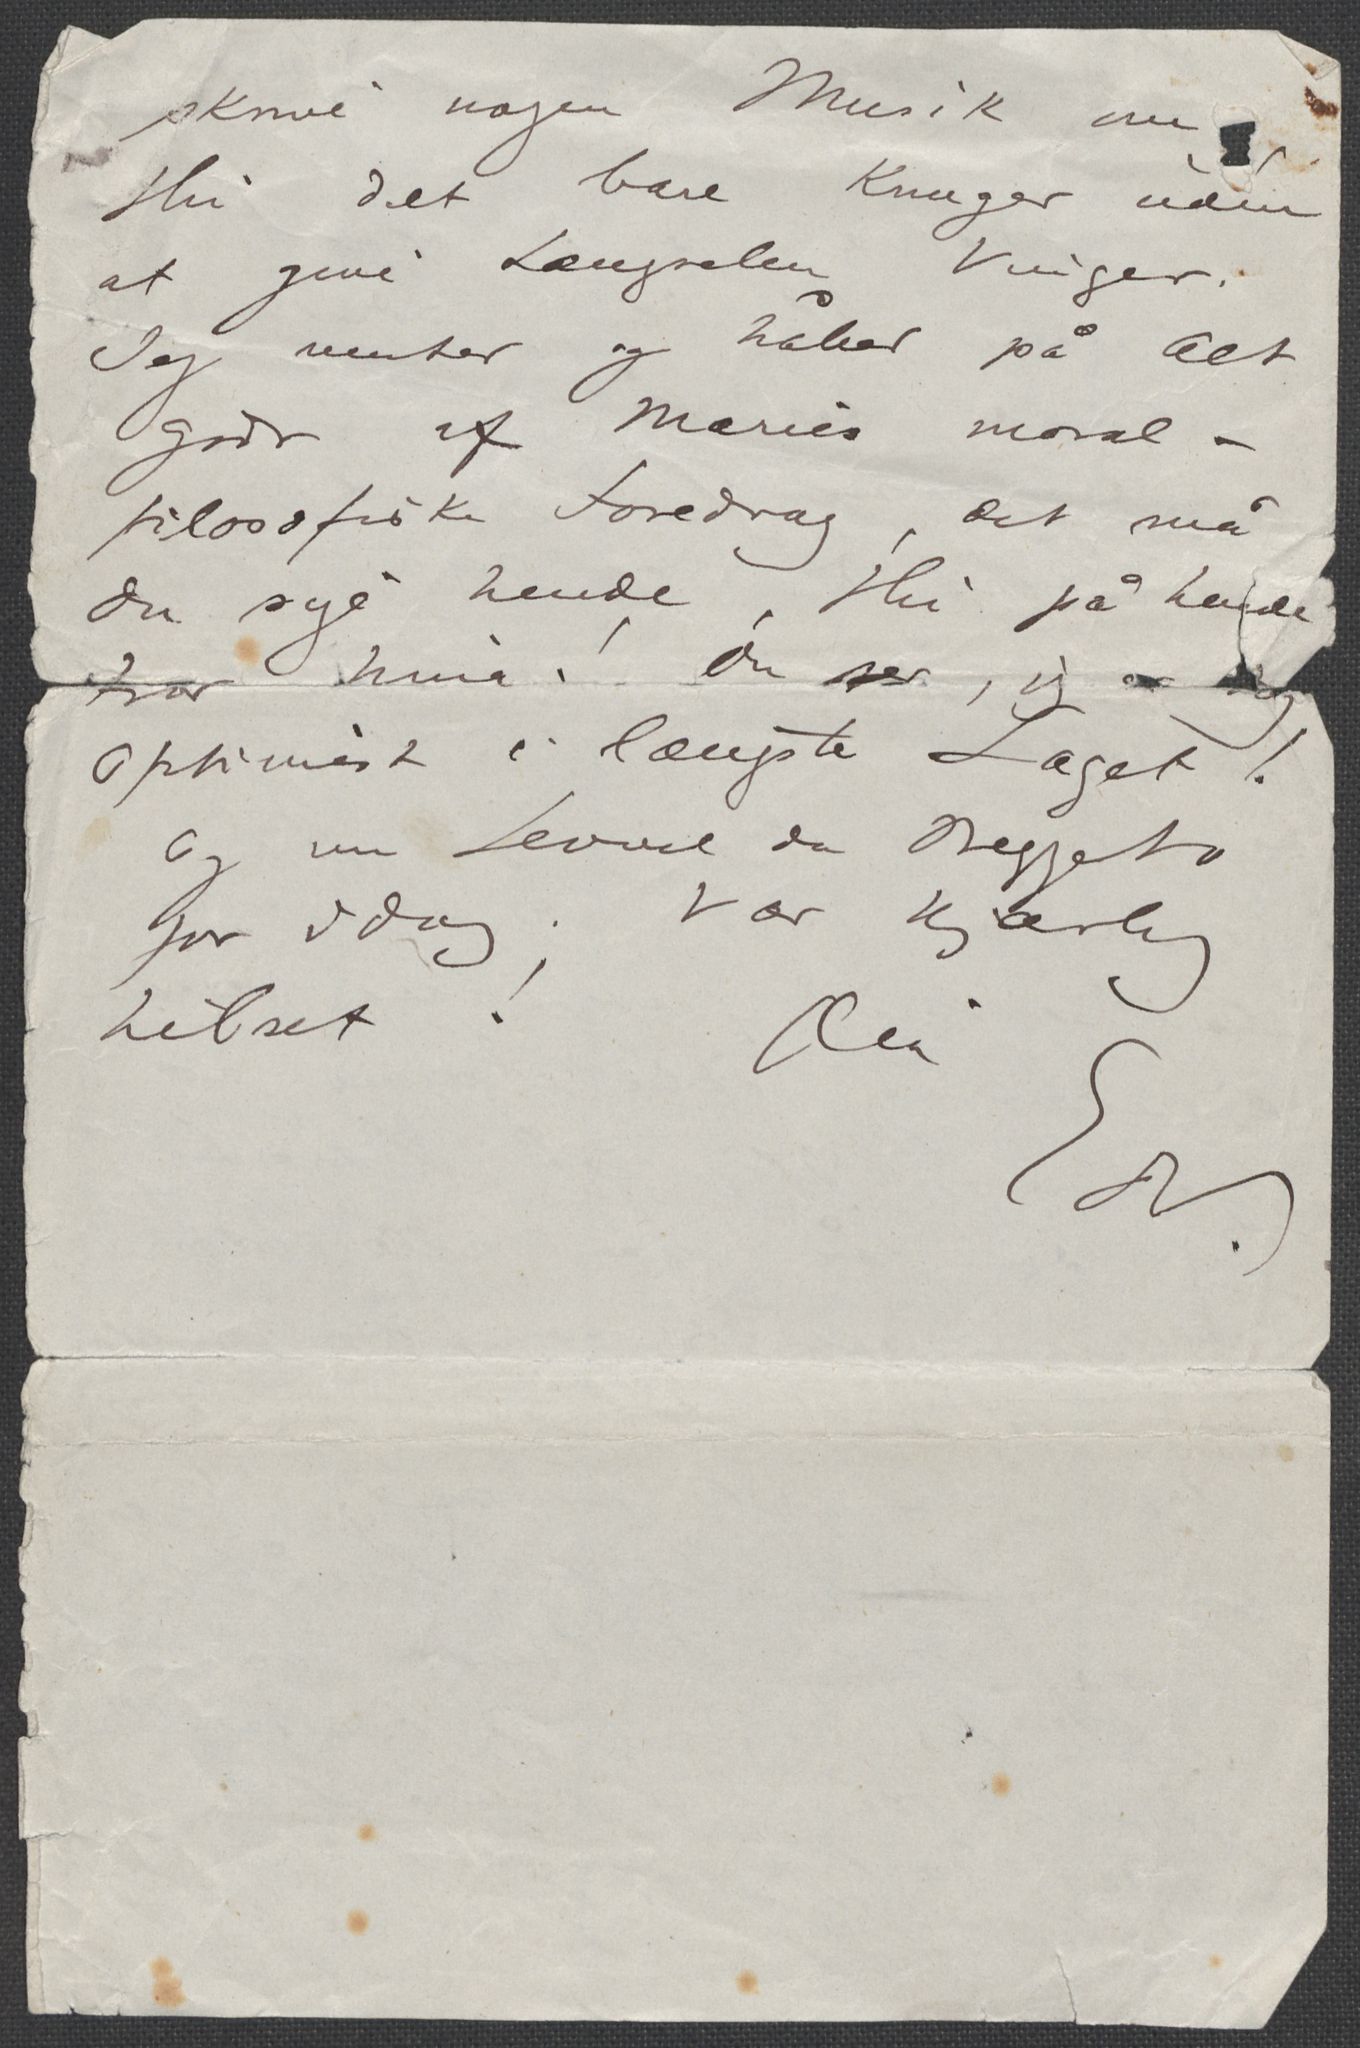 skrive nogen Musik om,
thi det bare knuger uden
at give Længselen Vinger.
Jeg venter og håber på alt
godt af Maries moral-
filosofiske Foredrag, det må
du sige hende, thi på hende
tror hun! Du ser, jeg er
Optimist i længste Laget!
Og nu Levvel da Begge to
for idag. Vær kjærlig
hilset! Din
Edv.